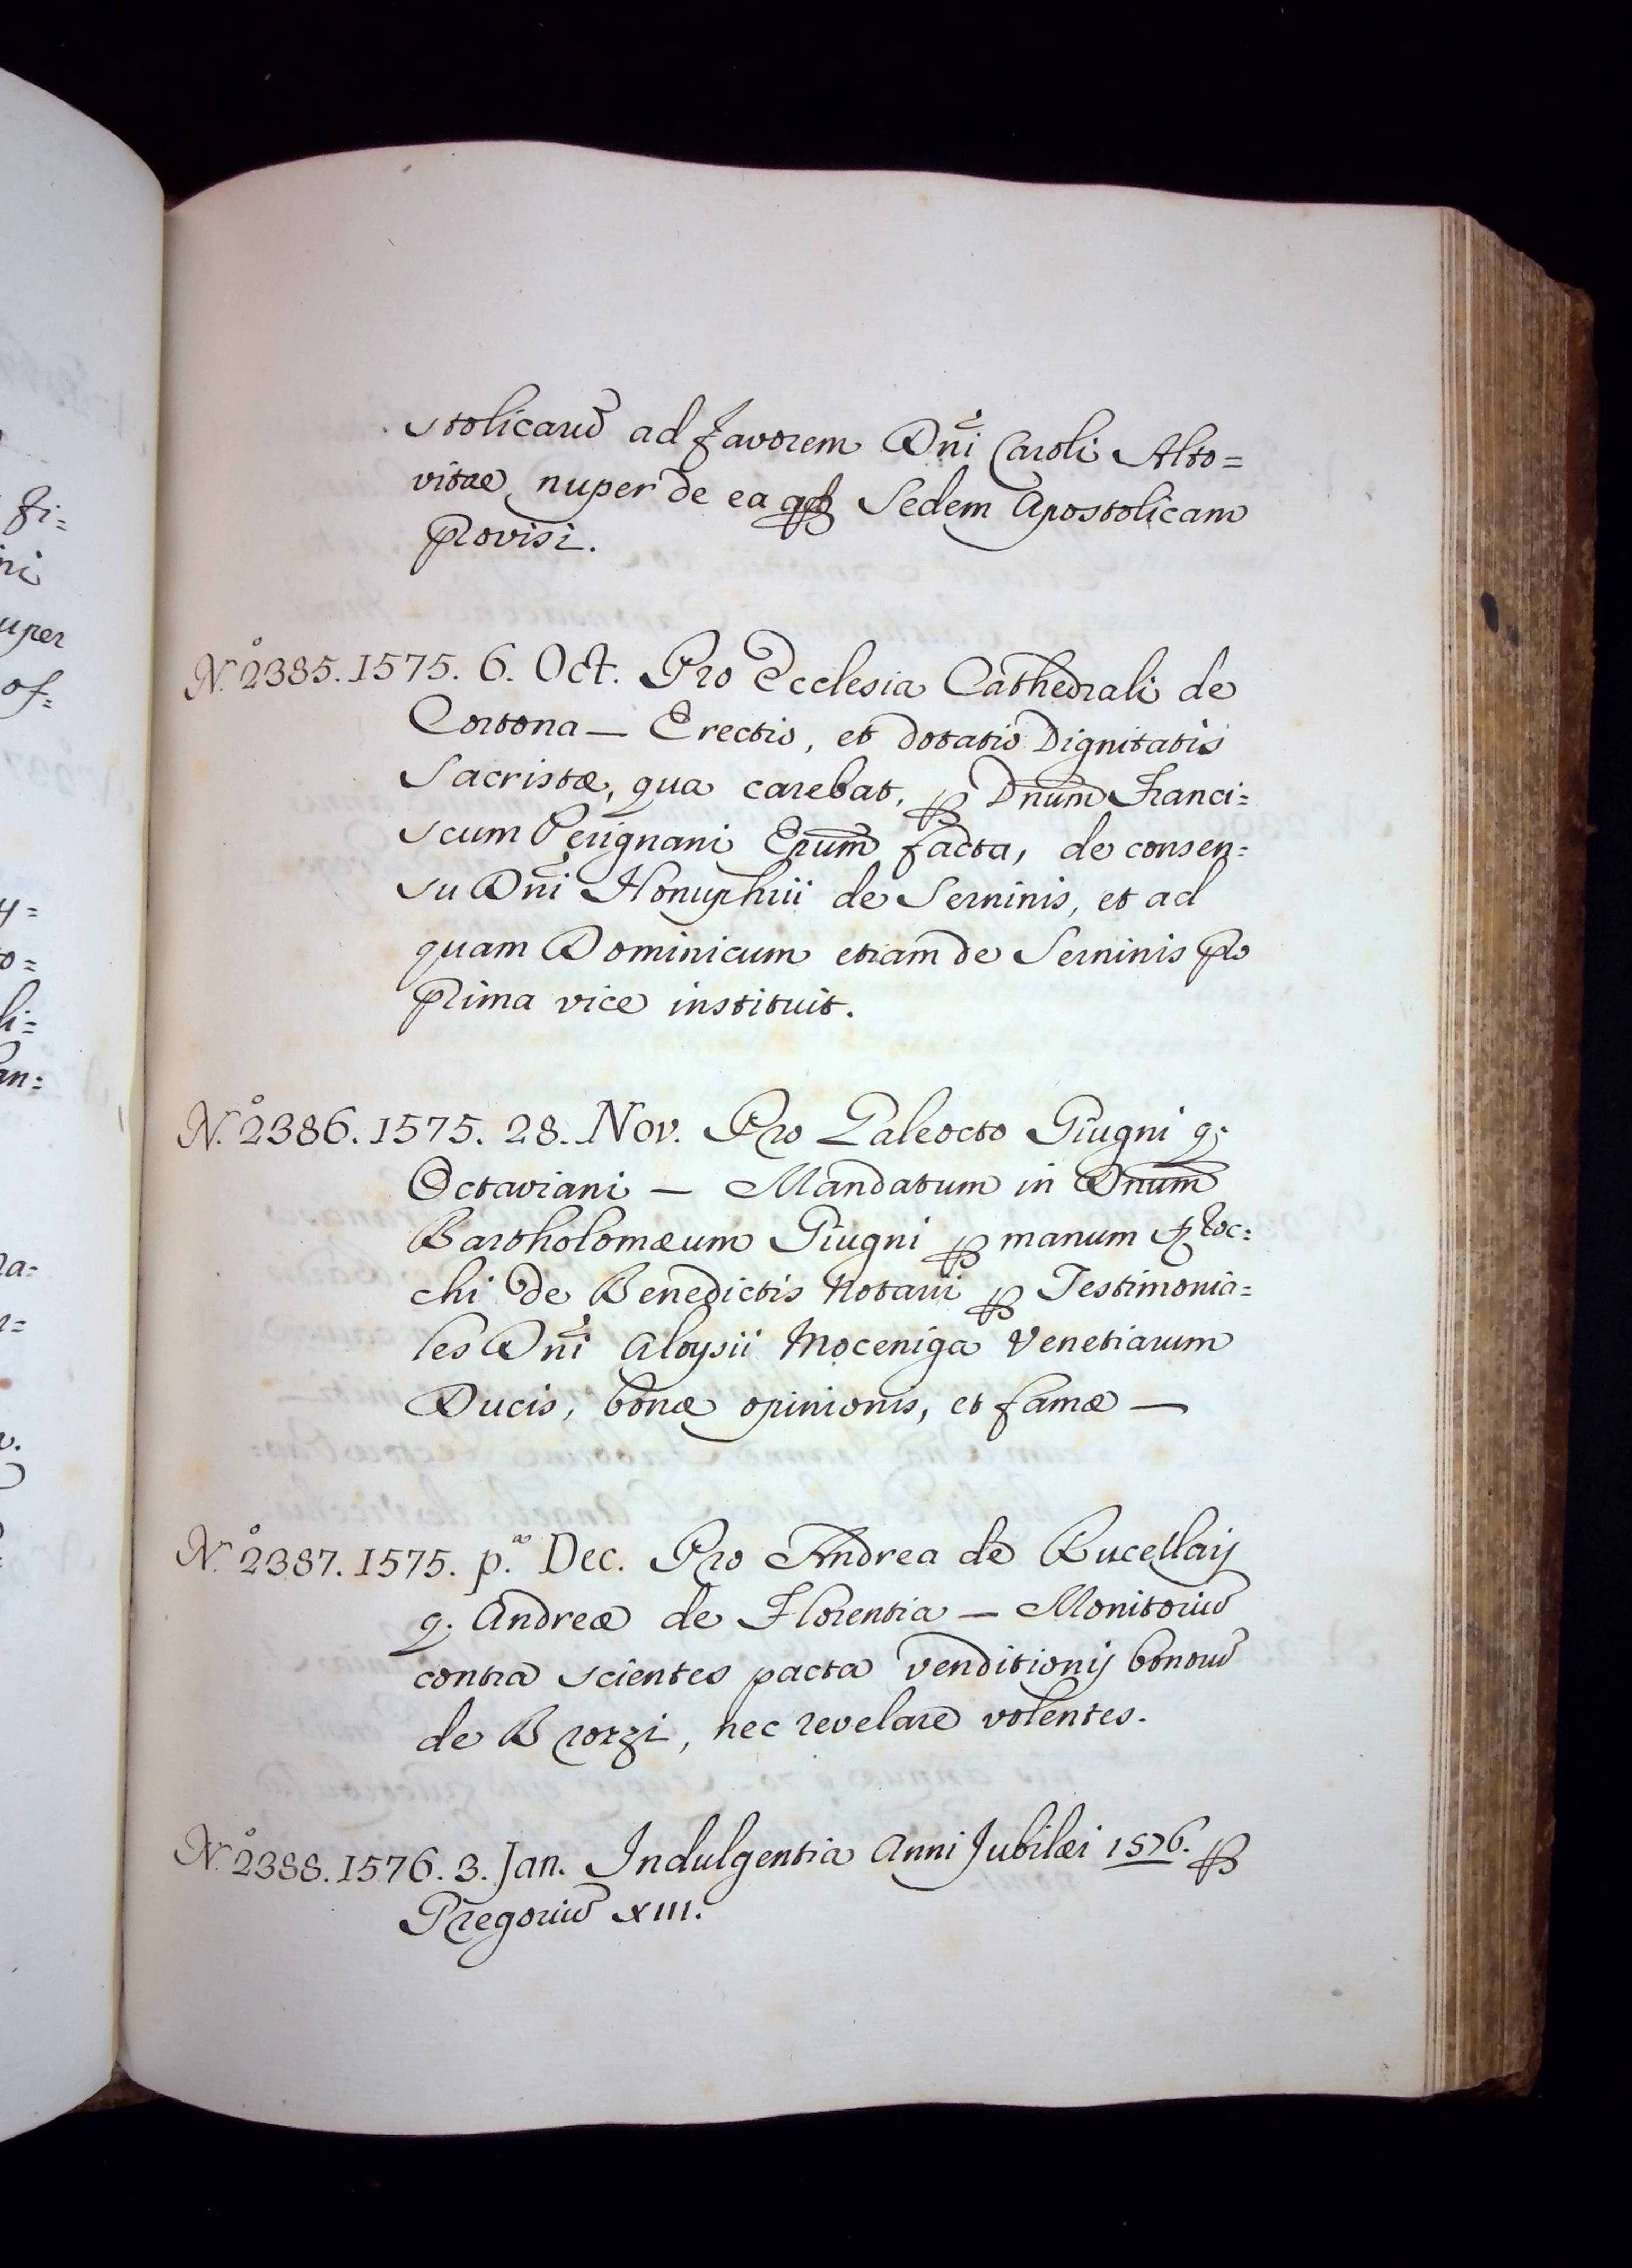 stolicarũ ad favorem Dñi Caroli Alto=
vitae nuper de ea Sedem Apostolicam
provisi.
N.º 2385. 1575. 6. Oct. Pro Ecclesia Cathedrali de
Cortona — Erectio, et dotatio Dignitatis
Sacristæ, qua carebat, ꝑ Dnum̃ Franci=
scum Perignani Epum̃ facta, de consen=
su Dñi Honuphrii de Serninis, et ad
quam Dominicum etiam de Serninis pro
prima vice instituit.
N.º 2386. 1575. 28. Nov. Pro Galeocto Giugni q;
Octaviani — Mandatum in Dnum̃
Bartholomæum Giugni ꝑ manum
chi de Benedictis Notarii ꝑ Testimonia=
les Dñi Aloysii Moceniga Venetiarum
Ducis, bonæ opinionis, et famæ —
N.º 2387. 1575. p.ª Dec. Pro Andrea de Bucellaij
q; Andreæ de Florentia — Monitoriũ
contra scientes pacta venditionij bonorũ
de Brozzi, nec revelare volentes.
N.º 2388. 1576. 3. Jan. Indulgentia Anni Jubilæi 1576. ꝑ
Gregoriũ XIII.
fi=
ni
uper
of=
y=
o=
li=
an:
na=